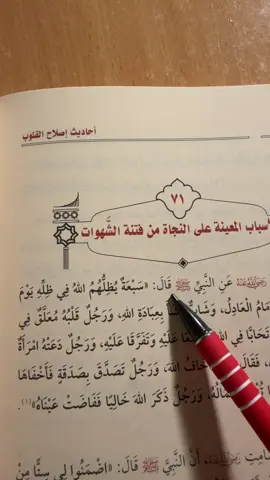 أحاديث إصلاح القلوب
٧١
أسباب المعينة على النجاة من فتنة الشَّهوات
عَنِ النَّبِيِّ ﷺ قَالَ: «سَبْعَةٌ يُظِلُّهُمُ اللهُ فِي ظِلِّهِ يَوْمَ
العَادِلُ، وَشَابٌّ بِعِبَادَةِ اللهِ، وَرَجُلٌ قَلْبُهُ مُعَلَّقٌ فِي
تَحَابَّا فِي عَلَيْهِ وَتَفَرَّقَا عَلَيْهِ، وَرَجُلٌ دَعَتْهُ امْرَأَةٌ
اللهَ، وَرَجُلٌ تَصَدَّقَ بِصَدَقَةٍ فَأَخْفَاهَا
وَرَجُلٌ ذَكَرَ اللهَ خَالِيًا فَفَاضَتْ عَيْنَاهُ»(١).
أَنَّ النَّبِيَّ ﷺ قَالَ: «اضْمَنُوا لِي سِتًّا مِنْ